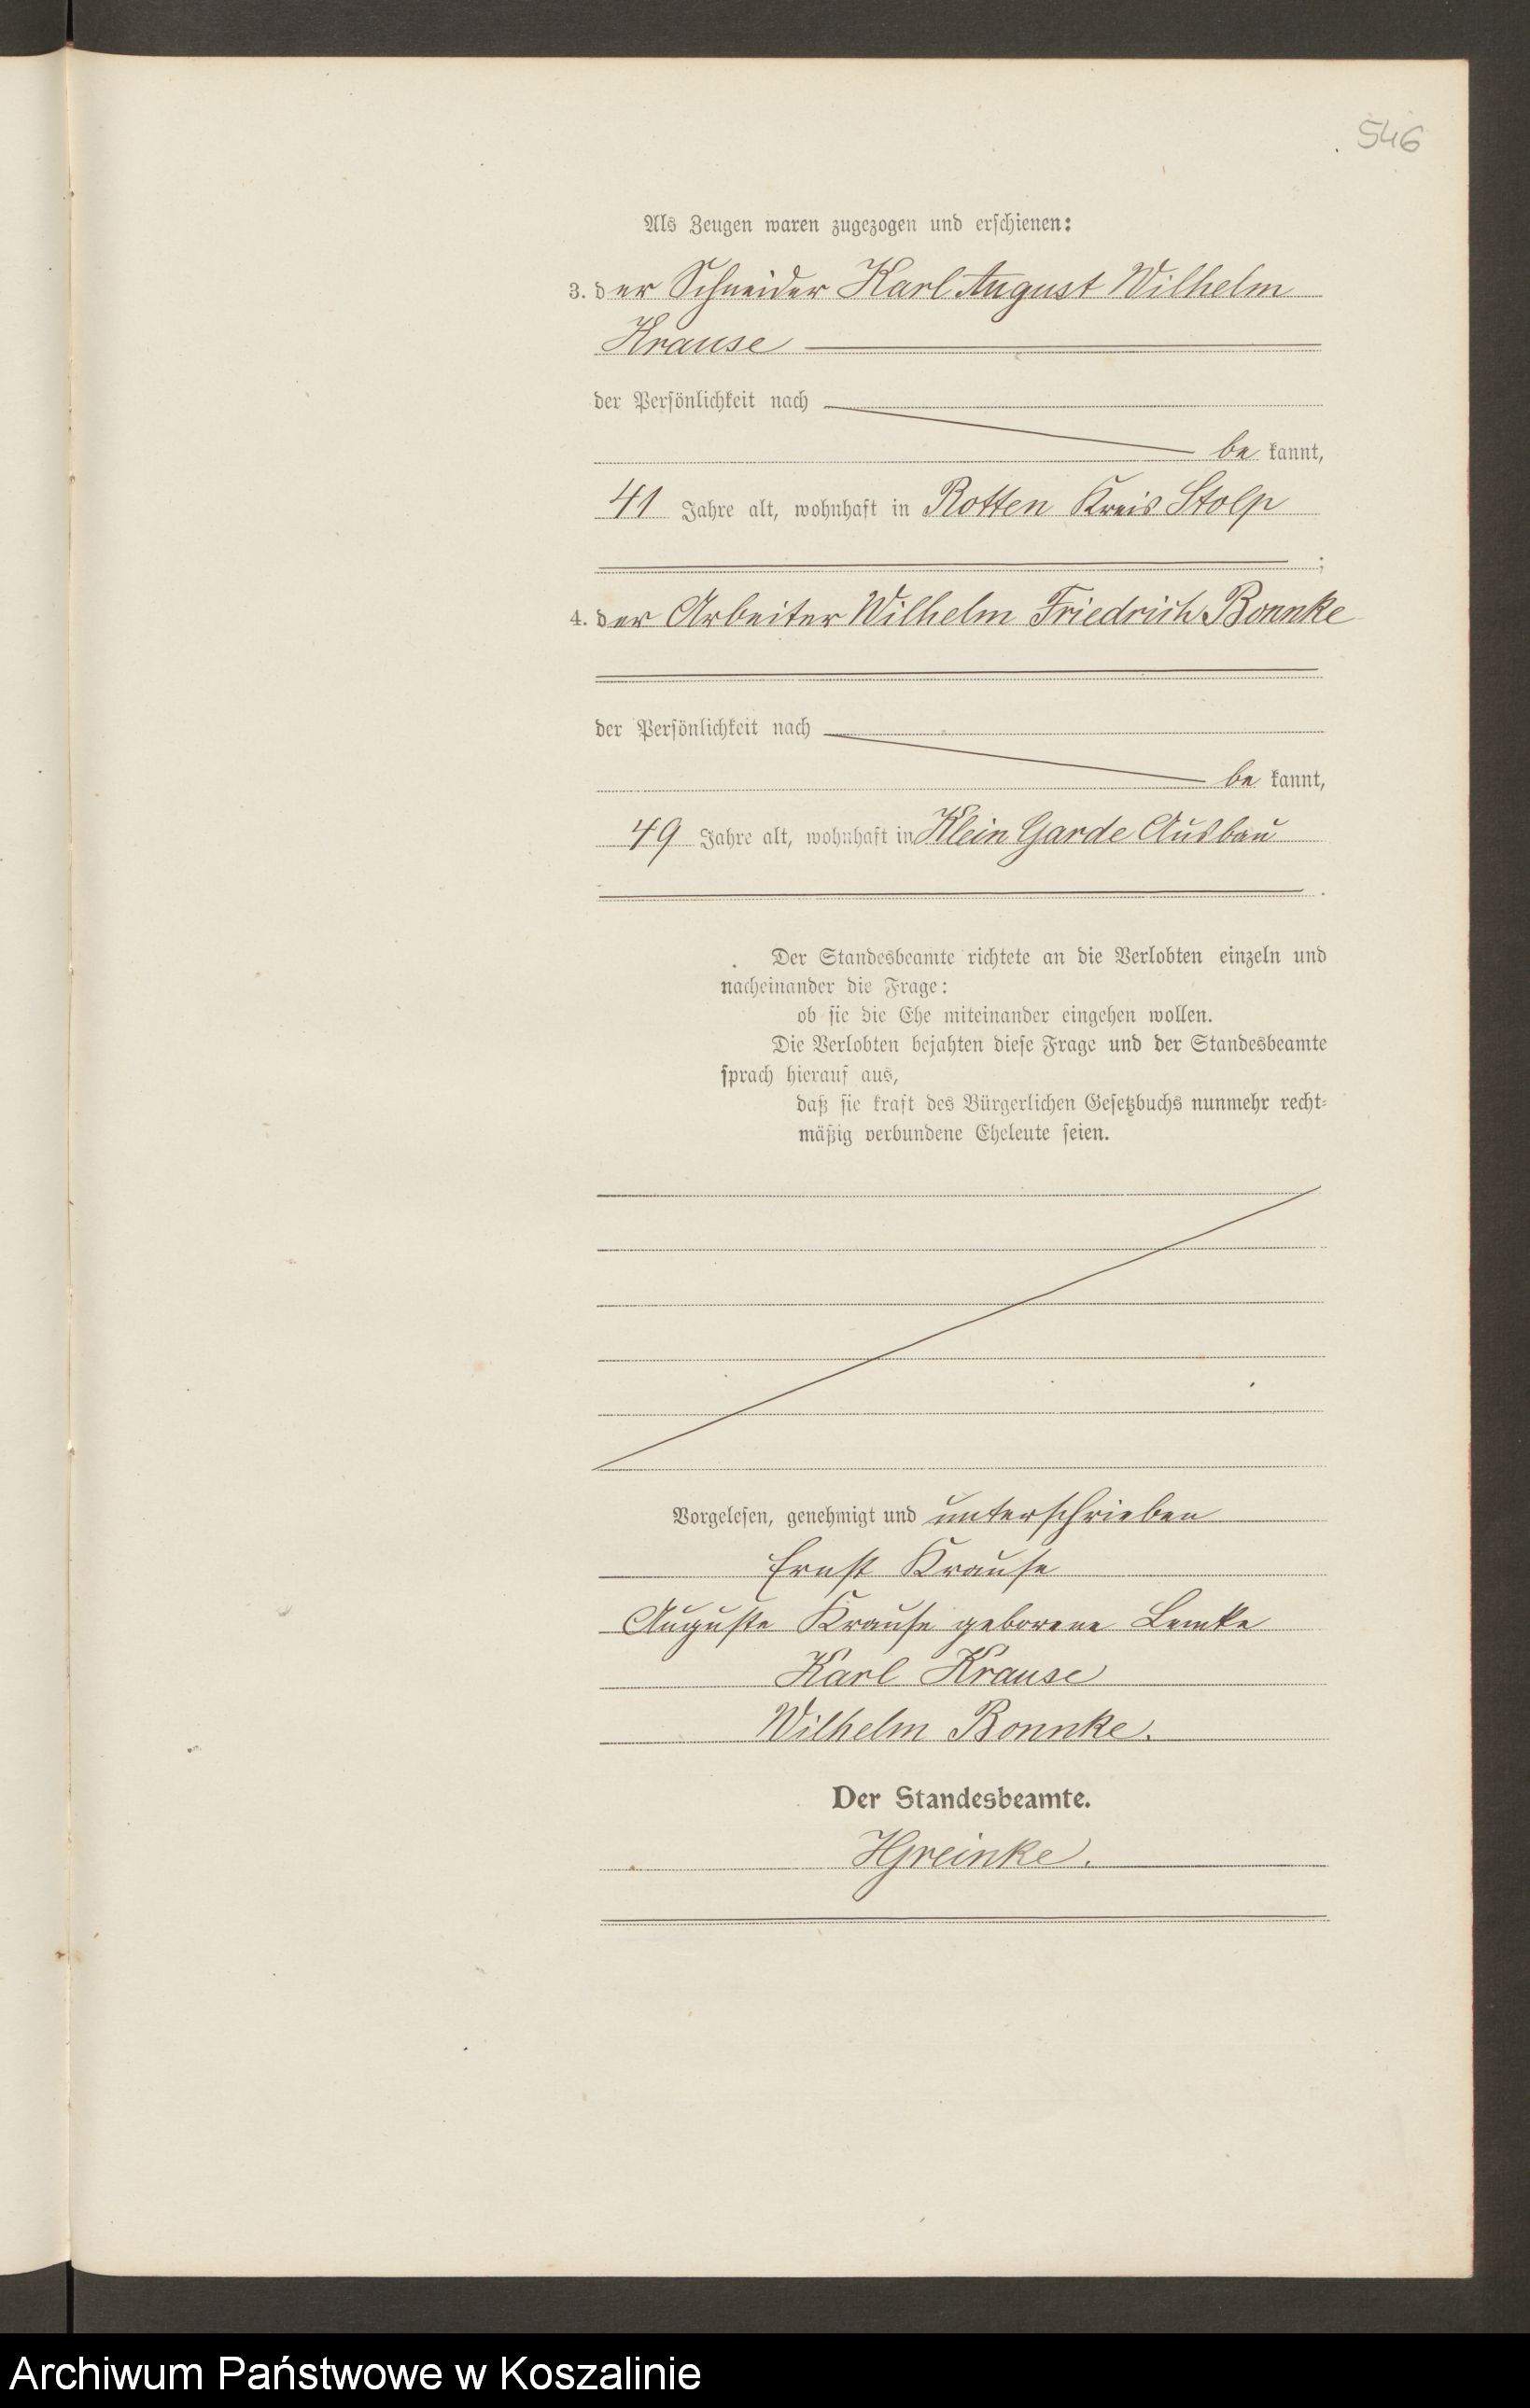 546
Als Zeugen waren zugezogen und erschienen:
3. der Schneider Karl August Wilhelm
Krause
der Persönlichkeit nach
be kannt,
41 Jahre alt, wohnhaft in Rotten Kreis Stolp
;
4. der Arbeiter Wilhelm Friedrich Bonnke
der Persönlichkeit nach
be kannt,
49 Jahre alt, wohnhaft in Klein Garde Ausbau
.
Der Standesbeamte richtete an die Verlobten einzeln und
nacheinander die Frage:
ob sie die Ehe miteinander eingehen wollen.
Die Verlobten bejahten diese Frage und der Standesbeamte
sprach hierauf aus,
daß sie kraft des Bürgerlichen Gesetzbuchs nunmehr recht-
mäßig verbundene Eheleute seien.
Vorgelesen, genehmigt und unterschrieben
Ernst Krause
Auguste Krause geborene Lemke
Karl Krause
Wilhelm Bonnke.
Der Standesbeamte.
HGreinke.
Archiwum Państwowe w Koszalinie